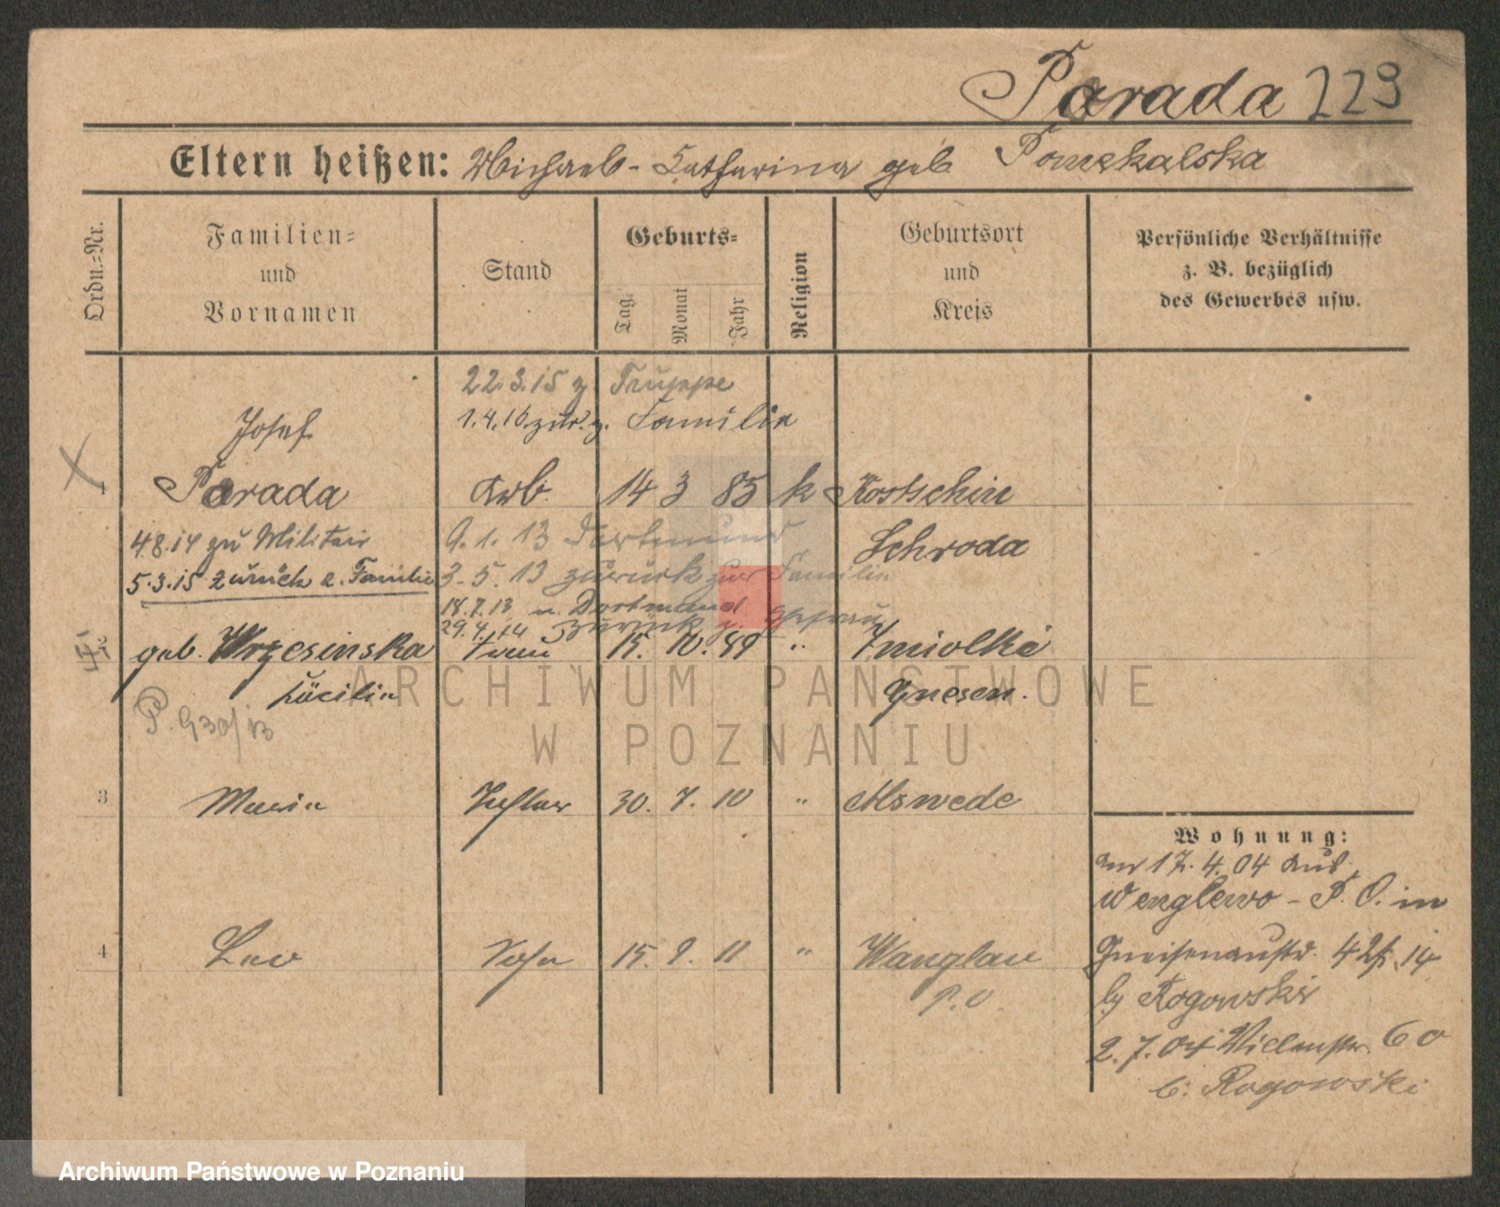 Parada 229
Eltern heißen: Michael - Katharina geb Pomykalska
Ordn.=Nr.
Familien=
und
Vornamen
Stand
Geburts=
Tag.
Monat
Jahr
Religion
Geburtsort
und
Kreis
Persönliche Verhältnisse
z. B. bezüglich
des Gewerbes usw.
22.3.15 z Truppe
1.4.16 zur. z. Familie
Josef
1 Parada Arb. 14 3 85 k Kostschin
Schroda
4.8.14 zu Militair
5.3.15 zurück z. Familie
9.1.13 Dortmund
3.5.13 zurück zur Familie
18.7.13 n. Dortmund
29.4.14 zurück z.
2 geb. Wrzesinska Frau 15. 10. 89 " Imiolki
Lücilie Gnesen.
P. 930/13
3 Marie Tochter 30. 7. 10 " Alswede
4 Leo Sohn 15. 9. 11 " Wanglau
P. O
Wohnung:
am 17.4.04 aus
Wenglewo - P. O. in
Gneisenaustr. 42 14
by Rogowski
2.7.04 60
b. Rogowski
ARCHIWUM PAŃSTWOWE
W POZNANIU
Archiwum Państwowe w Poznaniu